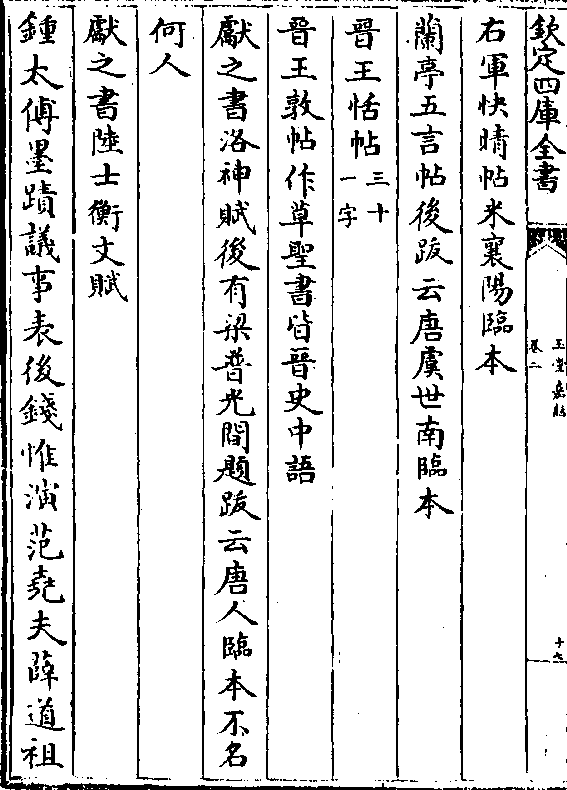 欽定四庫全書
玉堂嘉話
卷二
十七
右軍快晴帖米襄陽臨本
蘭亭五言帖後跋云唐虞世南臨本
晉王恬帖三十一字
晉王敦帖作草聖書皆晉史中語
獻之書洛神賦後有梁普光間題跋云唐人臨本不名
何人
獻之書陸士衡文賦
鍾太傅墨蹟議事表後錢惟演范堯夫薛道祖